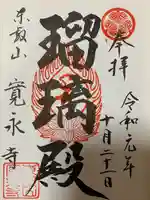 奉拝
令和元年
十月二十一日
瑠璃殿
東叡山
寛永寺